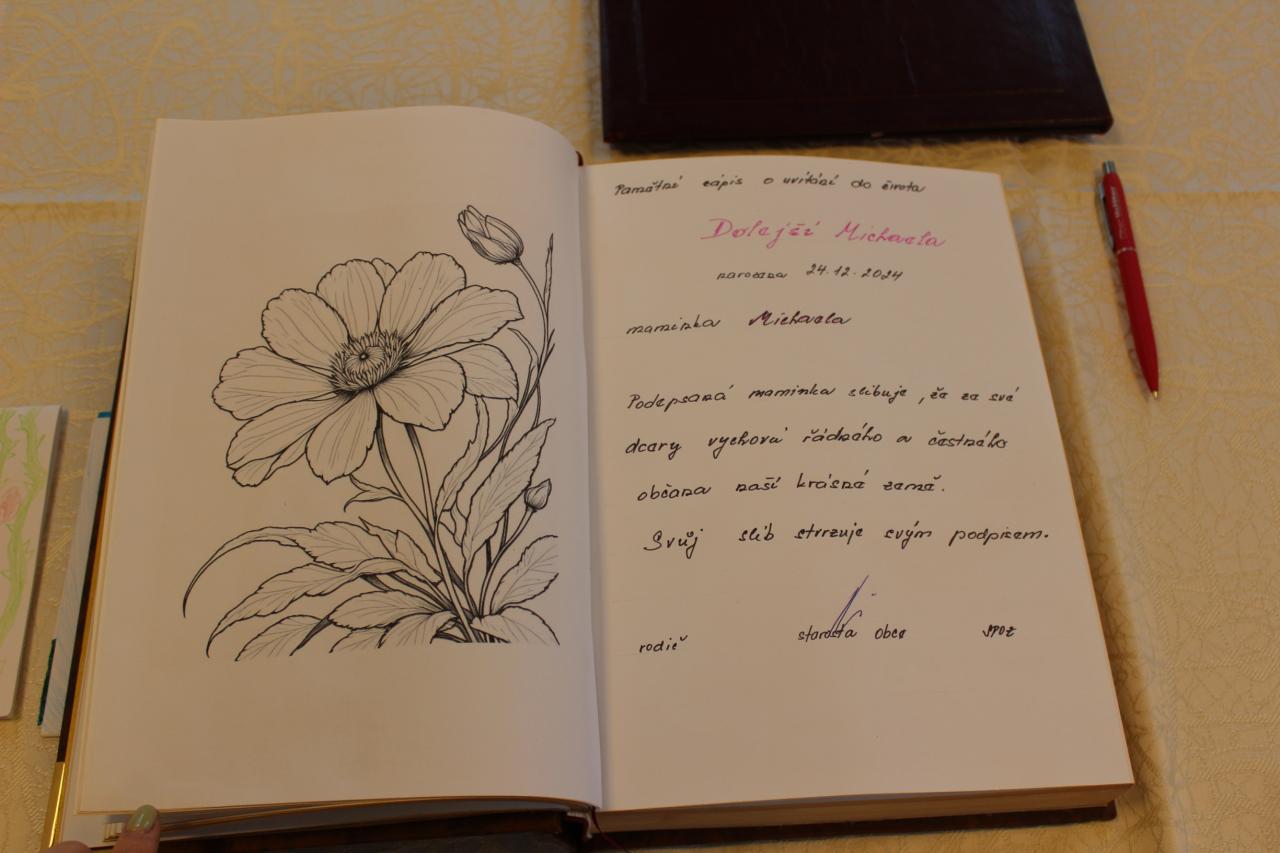 Pamětní zápis o uvítání do života
Dolejší Michaela
narozena 24.12.2024
maminka Michaela
Podepsaná maminka slibuje, že ze své
dcery vychová řádného a čestného
občana naší krásné země.
Svůj slib stvrzuje svým podpisem.
rodič starosta obce SPOZ